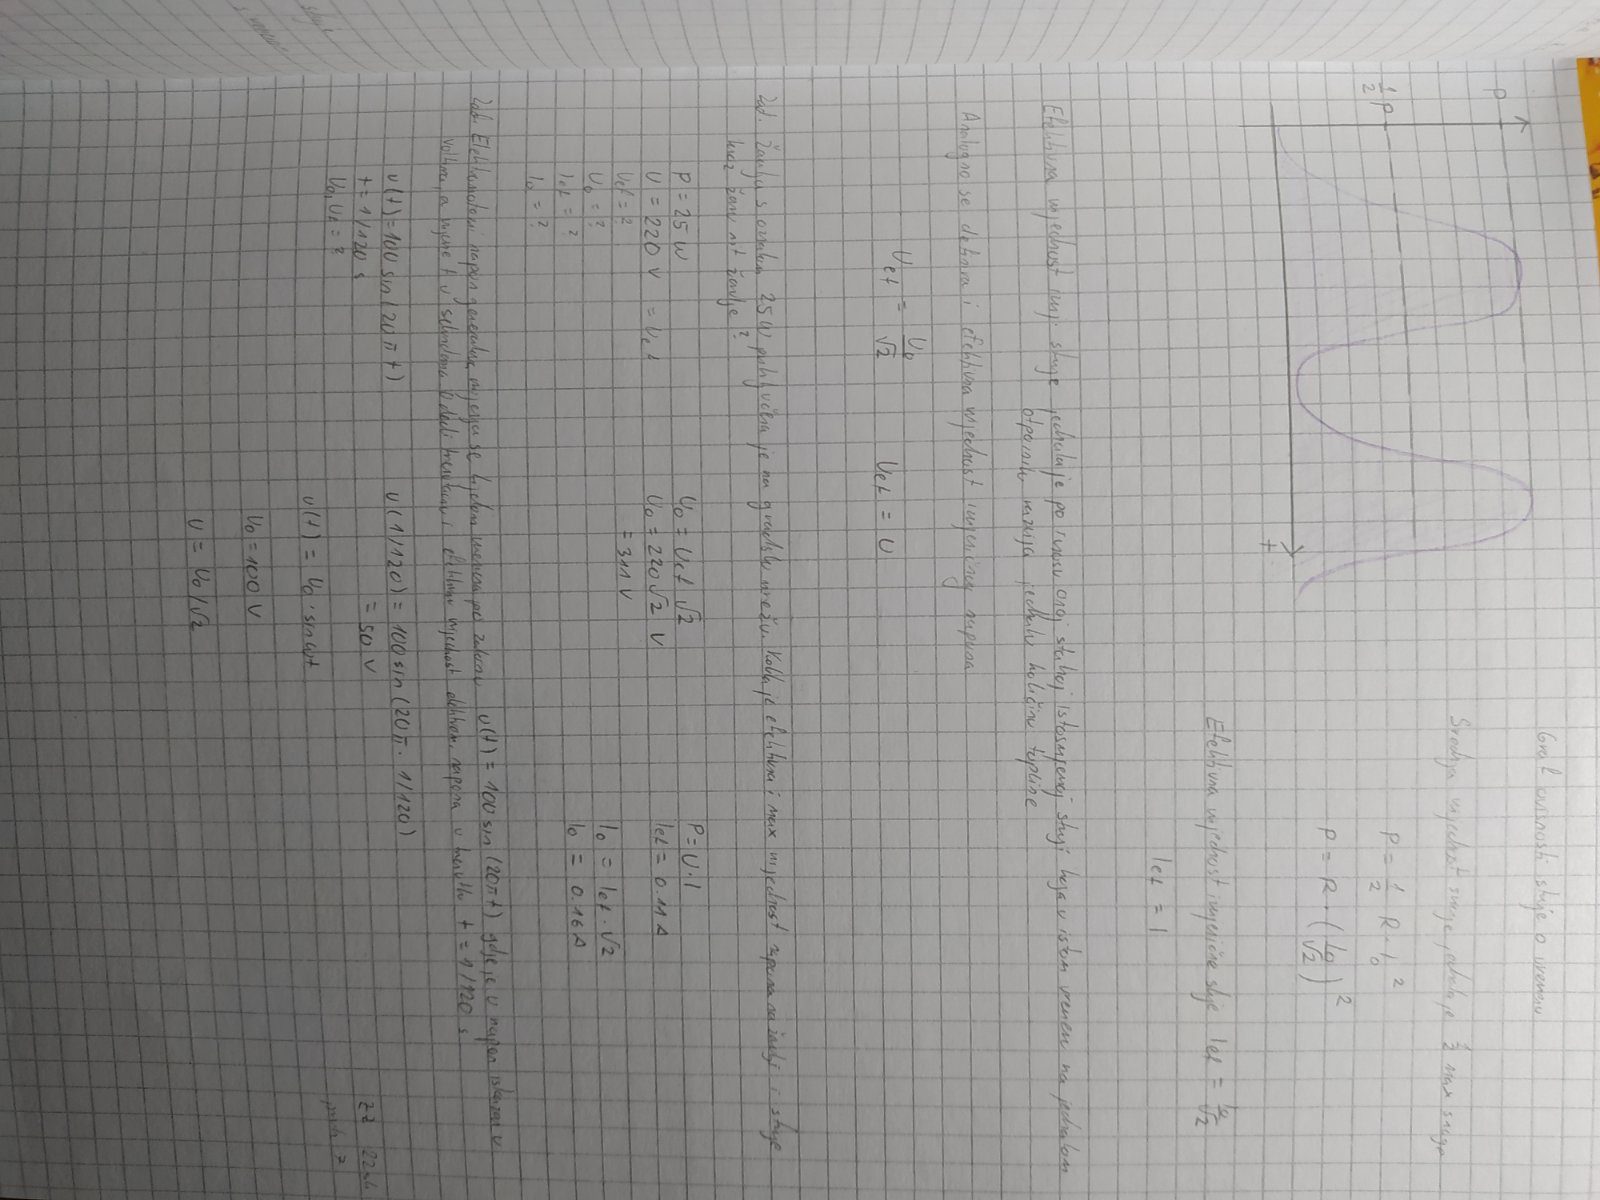 Graf ovisnosti struje o vremenu
P
1/2 P
t
Srednja vrijednost snage jednaka je 1/2 max snage
P = 1/2 R · I0²
P = R · (I0/√2)²
Efektivna vrijednost izmjenične struje Ief = I0/√2
Ief = I
Efektivna vrijednost izmj. struje jednaka je po iznosu onoj stalnoj istosmjernoj struji koja u istom vremenu na jednakom
otporniku razvija jednaku količinu topline
Analogno se definira i efektivna vrijednost izmjeničnog napona
Uef = U0/√2 Uef = U
Zad. Žarulja s oznakom 25 W priključena je na gradsku mrežu. Kolika je efektivna i max vrijednost napona na žarulji i struje
kroz žarulje?
P = 25 W
U = 220 V = Uef
Uef = ?
U0 = ?
Ief = ?
I0 = ?
U0 = Uef √2
U0 = 220 √2 V
= 311 V
P = U · I
Ief = 0.11 A
I0 = Ief · √2
I0 = 0.16 A
Zad. Elektromotorni napon generatora mijenja se tijekom vremena po zakonu u(t) = 100 sin (20πt) gdje je u napon iskazan u
voltima, a vrijeme t u sekundama. Odredi trenutnu i efektivnu vrijednost elektrom. napona u trenutku t = 1/120 s
u(t) = 100 sin (20πt)
t = 1/120 s
U0, Uf = ?
u(1/120) = 100 sin (20π · 1/120)
= 50 V
u(t) = U0 · sin ωt
U0 = 100 V
U = U0/√2
ZZ